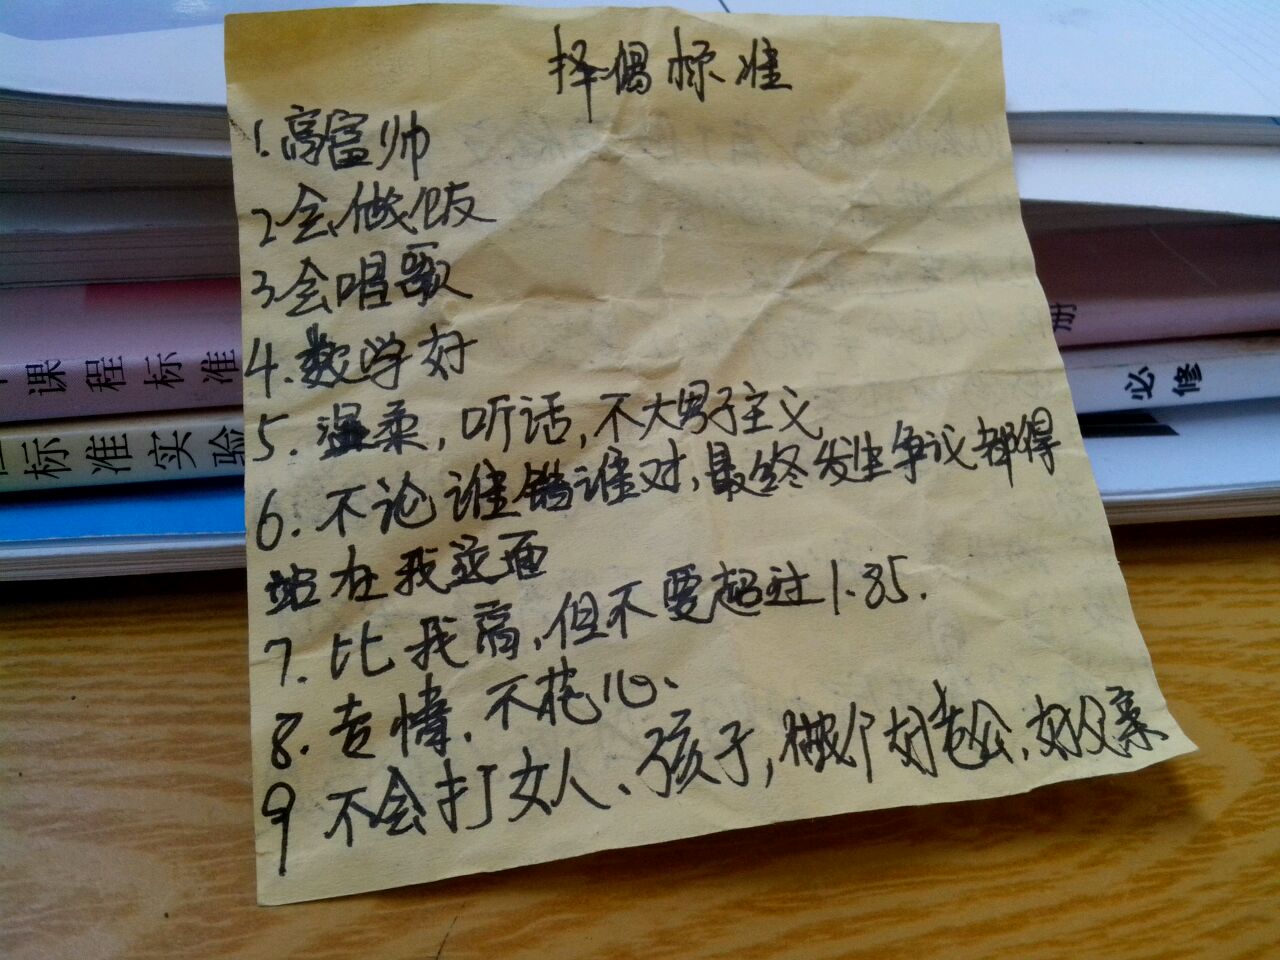 择偶标准
1.高富帅
2.会做饭
3.会唱歌
4.数学好
5.温柔,听话,不大男子主义
6.不论谁错谁对,最终发生争议都得
站在我这面
7.比我高,但不要超过1.85.
8.专情,不花心.
9 不会打女人、孩子,做个好老公,好父亲
课程标准
标准实验
必修
册